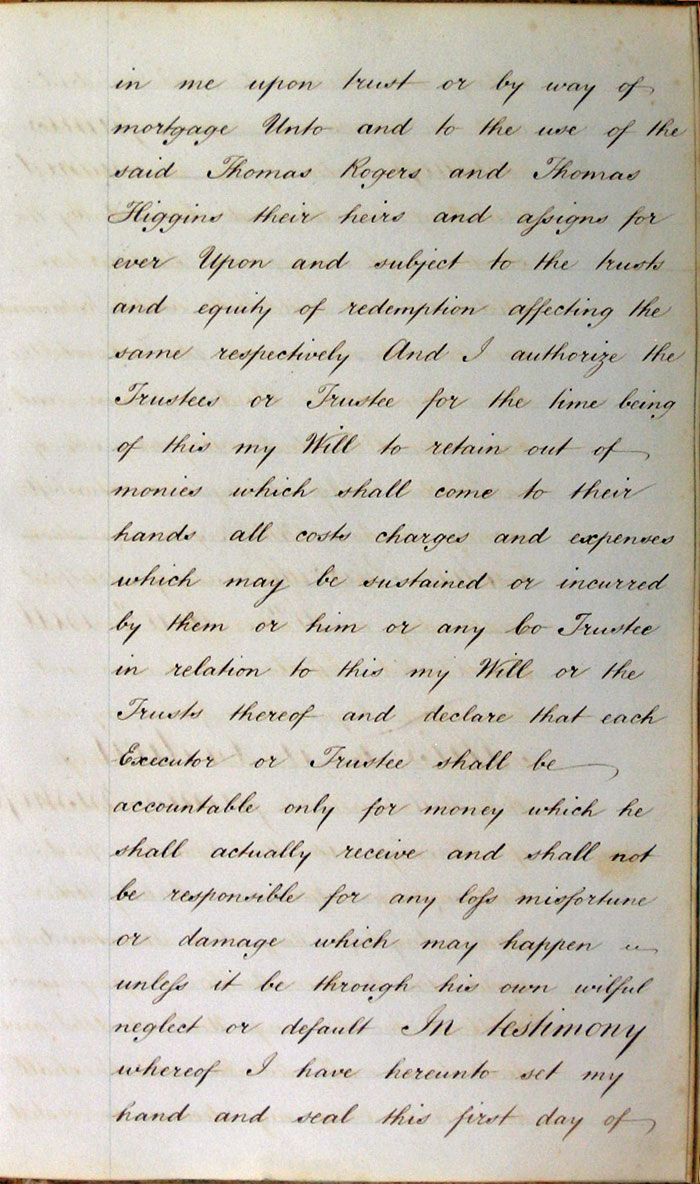 in me upon trust or by way of
mortgage Unto and to the use of the
said Thomas Rogers and Thomas
Higgins their heirs and aſsigns for
ever Upon and subject to the trusts
and equity of redemption affecting the
same respectively And I authorize the
Trustees or Trustee for the time being
of this my Will to retain out of
monies which shall come to their
hands all costs charges and expenses
which may be sustained or incurred
by them or him or any Co Trustee
in relation to this my Will or the
Trusts thereof and declare that each
Executor or Trustee shall be
accountable only for money which he
shall actually receive and shall not
be responsible for any loſs misfortune
or damage which may happen
unleſs it be through his own wilful
neglect or default In testimony
whereof I have hereunto set my
hand and seal this first day of